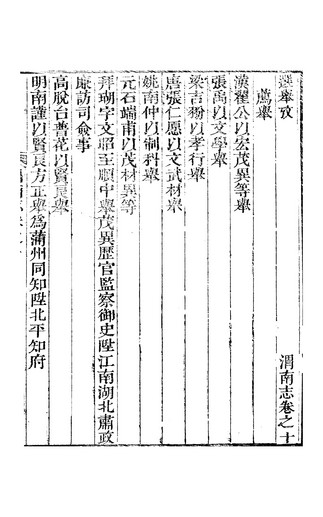 選舉攷 渭南志卷之十
薦舉
漢翟公以宏茂異等舉
張禹以文學舉
梁吉翂以孝行舉
唐張仁愿以文武材舉
姚南仲以制科舉
元石端甫以茂材異等
拜瑚字文昭至順中舉茂異歷官監察御史陞江南湖北肅政
廉訪司僉事
高脫台普花以賢良舉
明南謹以賢良方正舉爲蒲州同知陞北平知府